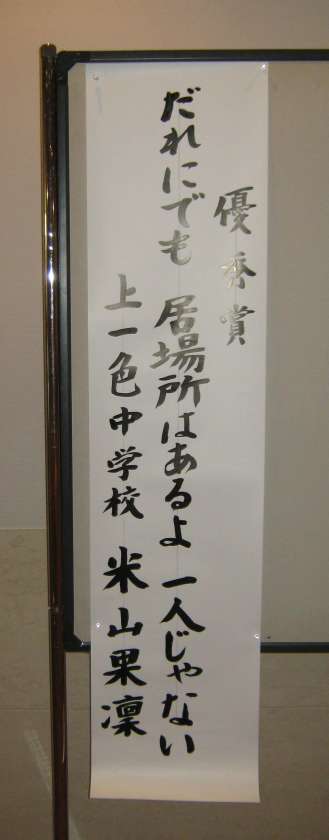 優秀賞
だれにでも 居場所はあるよ 一人じゃない
上一色中学校 米山果凛